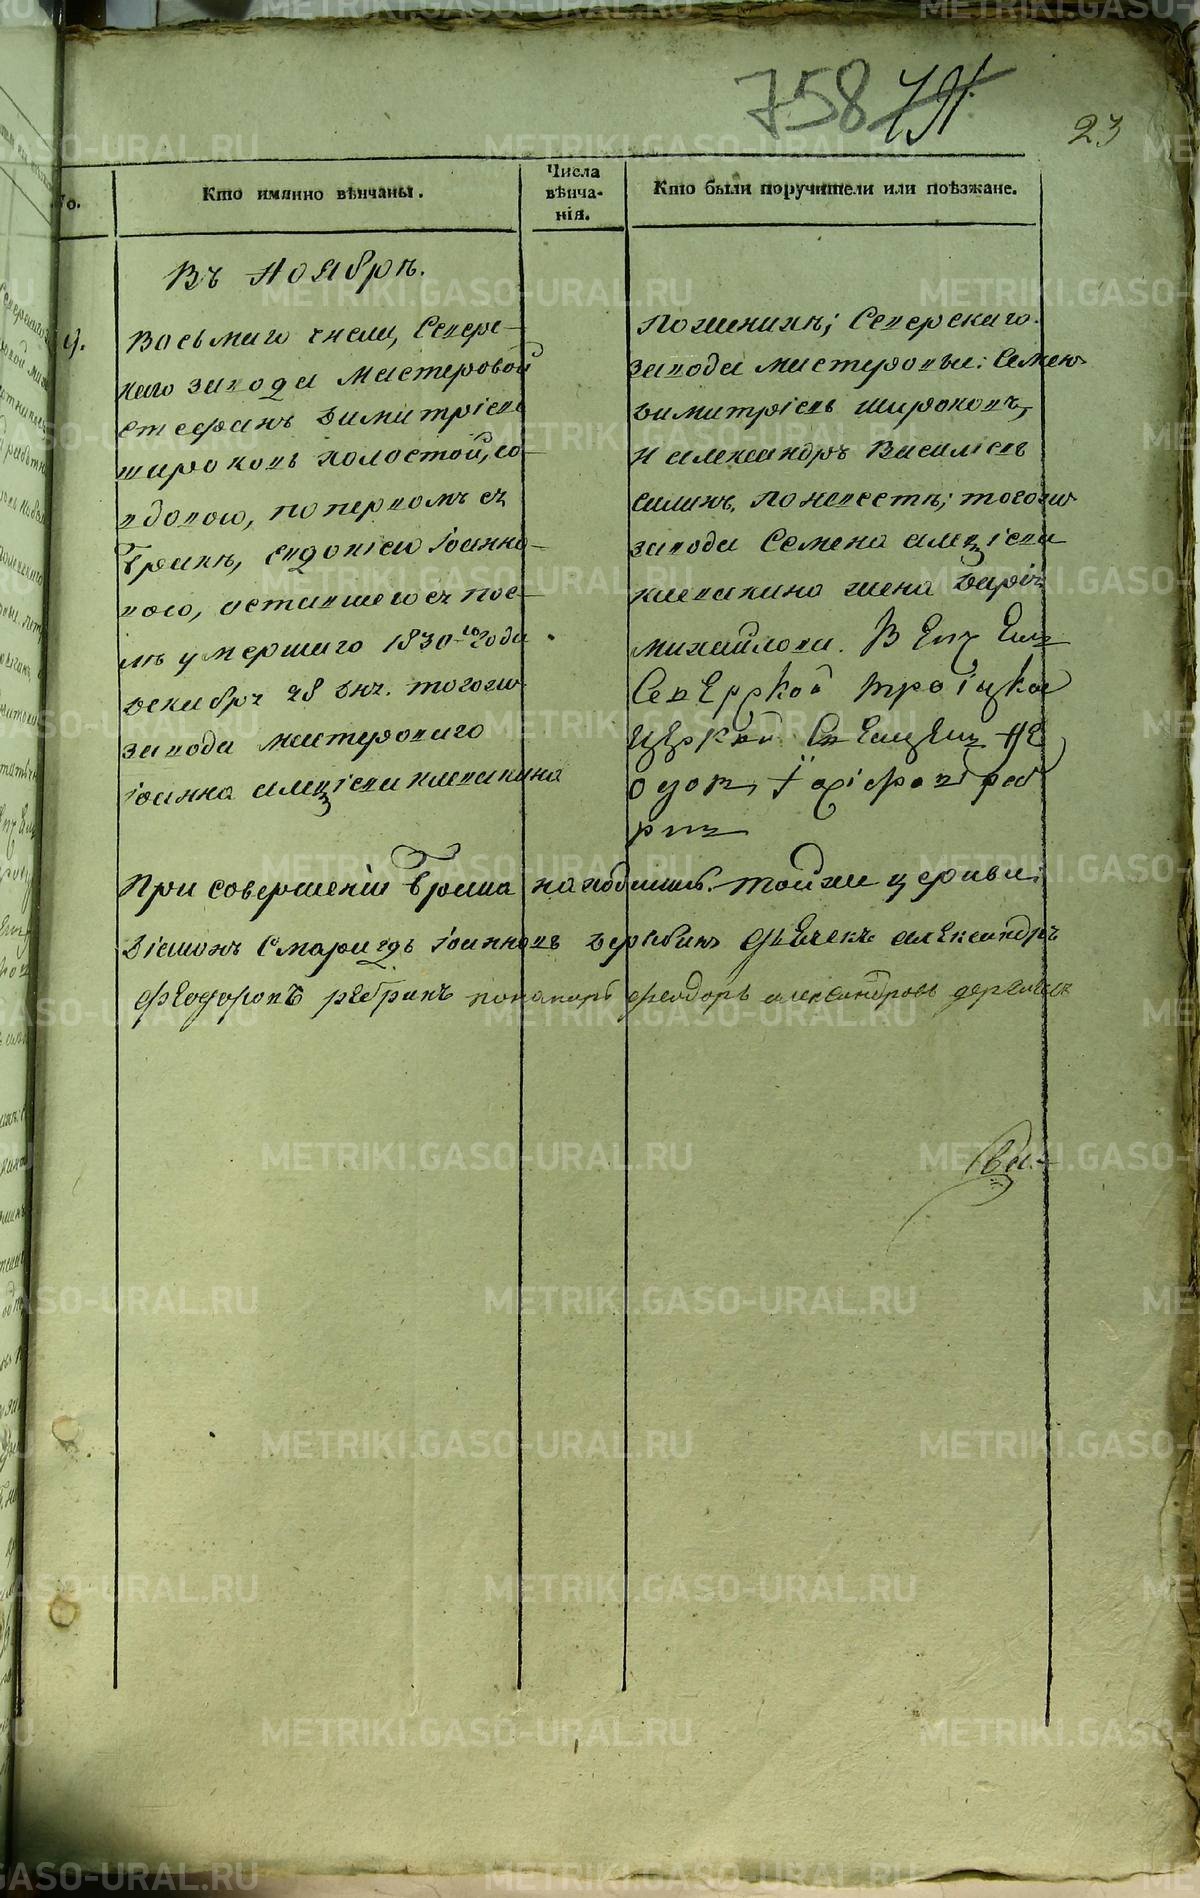 758 791
23
No.
Кто имянно вѣнчаны.
Числа
вѣнча-
нія.
Кто были поручители или поѣзжане.
Въ Ноябрѣ.
9.
Восьмаго числа, Северс-
каго завода мастеровой
Стефанъ Димитріевъ
Широковъ холостой, со
вдовою, по первомъ ея
бракѣ, Евдокіею Іоанно-
вою, оставшеюся пос-
лѣ умершаго 1830-го года
декабря 28 дня. тогожъ
завода мастероваго
Іоанна Алексіева Клепакина
По женихѣ; Северскаго
завода мастеровыи: Семенъ
Димитріевъ Широковъ,
и Александръ Василіевъ
Силинъ. По невестѣ; тогожъ
завода Семена Алексіева
Клепакина жена Дарія
Михайлова. Вѣнчалъ
Северской Троицкой
церкви Священникъ
При совершеніи брака находились. тойже церкви:
Діаконъ Смарагдъ Іоанновъ Дерябинъ дьячекъ Александръ
Феодоровъ Ребринъ пономарь Феодоръ Александровъ Дерябинъ
METRIKI.GASO-URAL.RU